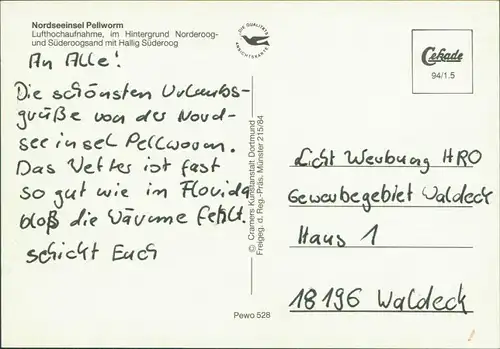 Nordseeinsel Pellworm
Lufthochaufnahme, im Hintergrund Norderoog-
und Süderoogsand mit Hallig Süderoog
An Alle!
Die schönsten Urlaubs-
grüße von der Nord-
seeinsel Pellworm.
Das Wetter ist fast
so gut wie im Florida
bloß die Wärme fehlt.
schickt Euch
Pewo 528
© Cramers Kunstanstalt Dortmund
Freigeg. d. Reg.-Präs. Münster 215/84
DIE QUALITÄTS
ANSICHTSKARTE
Cekade
94/1.5
Licht Werbung HRO
Gewerbegebiet Waldeck
Haus 1
18196 Waldeck